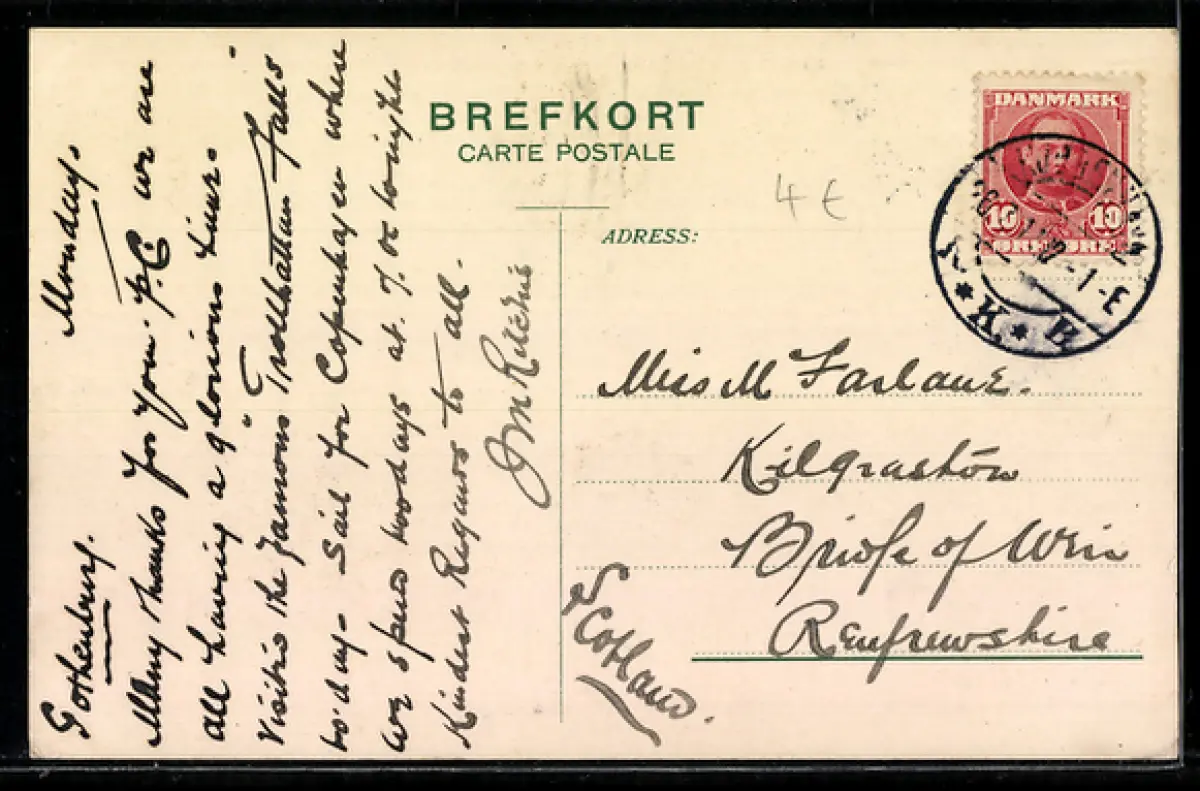 BREFKORT
CARTE POSTALE
DANMARK
10 10
ØRE ØRE
4 €
ADRESS:
K. B
Gothenburg. Monday.
Many thanks for your P.C. we are
all having a glorious time.
Visited the famous "Trollhattan Falls"
to'day - Sail for Copenhagen where
we spend two days at 7.0c to night
Kindest Regards to all.
J M Ritchie
Miss M Farlane.
Kilgraston
Bridge of Weir
Renfrewshire
Scotland.